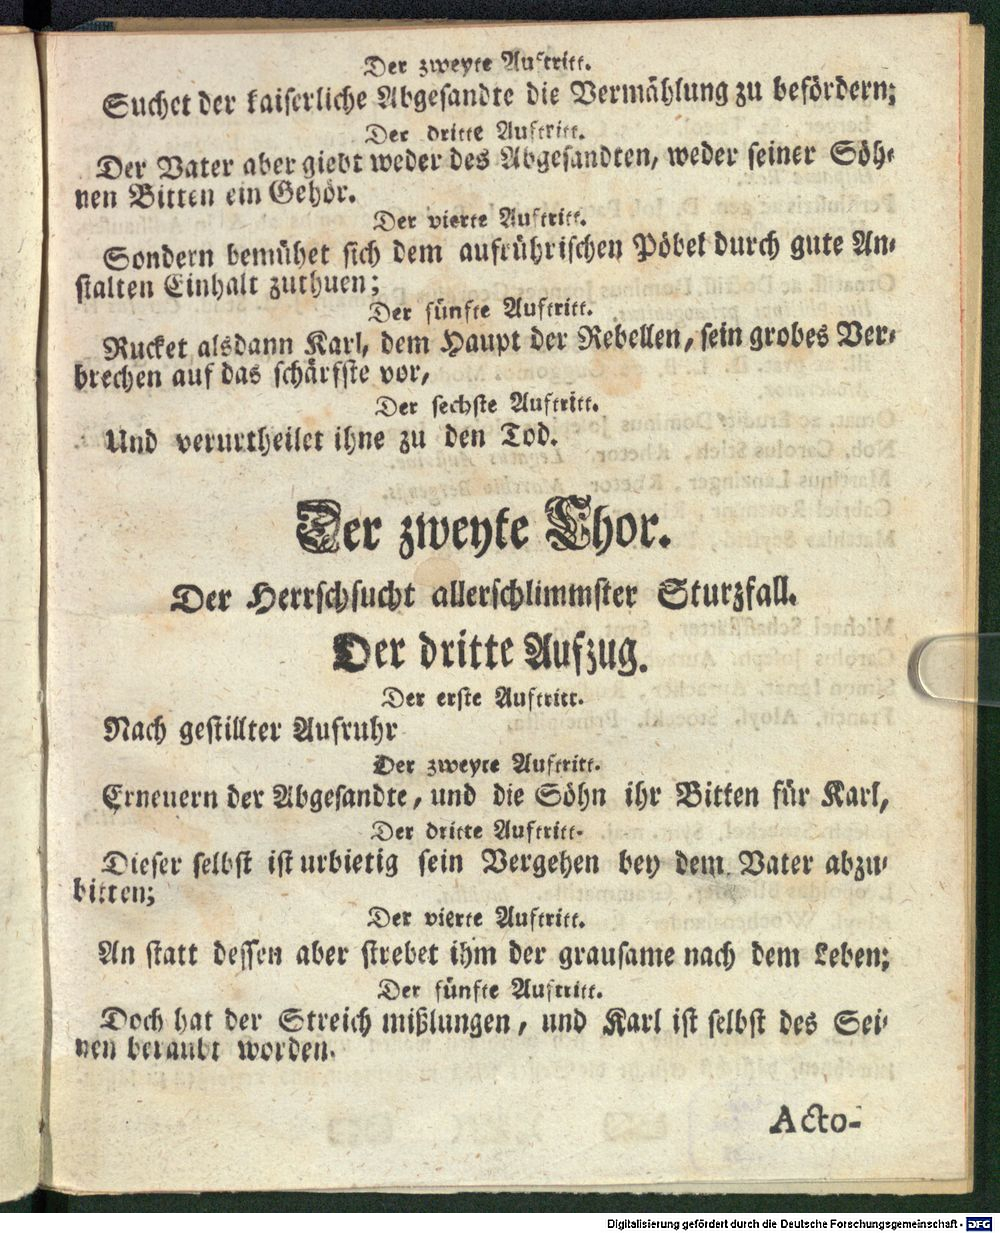 Der zweyte Auftritt.
Suchet der kaiserliche Abgesandte die Vermählung zu befördern;
Der dritte Auftritt.
Der Vater aber giebt weder des Abgesandten, weder seiner Söh-
nen Bitten ein Gehör.
Der vierte Auftritt.
Sondern bemühet sich dem aufrührischen Pöbel durch gute An-
stalten Einhalt zuthuen;
Der fünfte Auftritt.
Rucket alsdann Karl, dem Haupt der Rebellen, sein grobes Ver-
brechen auf das schärfste vor,
Der sechste Auftritt.
Und verurtheilet ihne zu den Tod.
Der zweyte Chor.
Der Herrschsucht allerschlimmster Sturzfall.
Der dritte Aufzug.
Der erste Auftritt.
Nach gestillter Aufruhr
Der zweyte Auftritt.
Erneuern der Abgesandte, und die Söhn ihr Bitten für Karl,
Der dritte Auftritt.
Dieser selbst ist urbietig sein Vergehen bey dem Vater abzu-
bitten;
Der vierte Auftritt.
An statt dessen aber strebet ihm der grausame nach dem Leben;
Der fünfte Auftritt.
Doch hat der Streich mißlungen, und Karl ist selbst des Sei-
nen beraubt worden.
Acto-
Digitalisierung gefördert durch die Deutsche Forschungsgemeinschaft - DFG